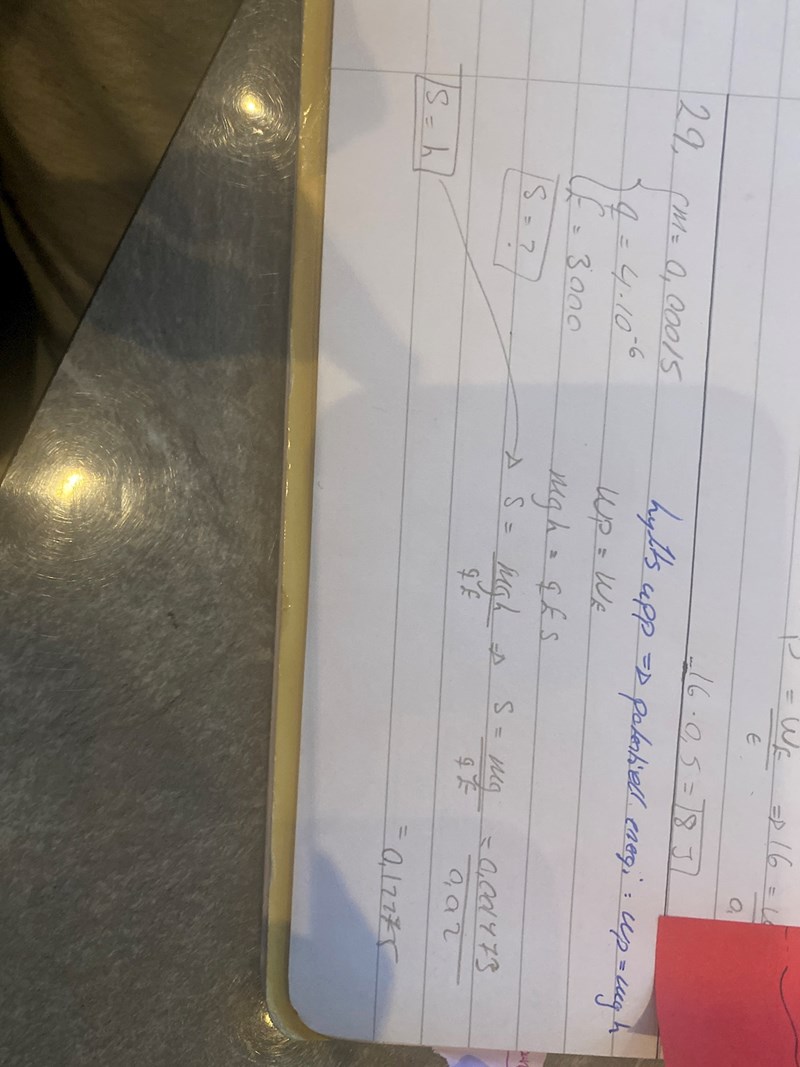 p = WE/t ⇒ 16 =
16 · 0,5 = 8 J
29. m = 0,00015
q = 4·10⁻⁶
E = 3000
S = ?
S = h
lyfts upp ⇒ potentiell energi: Wp = mgh
Wp = WE
mgh = qES
→ S = mgh/qE ⇒ S = mg/qE = 0,001473/0,02
= 0,12275